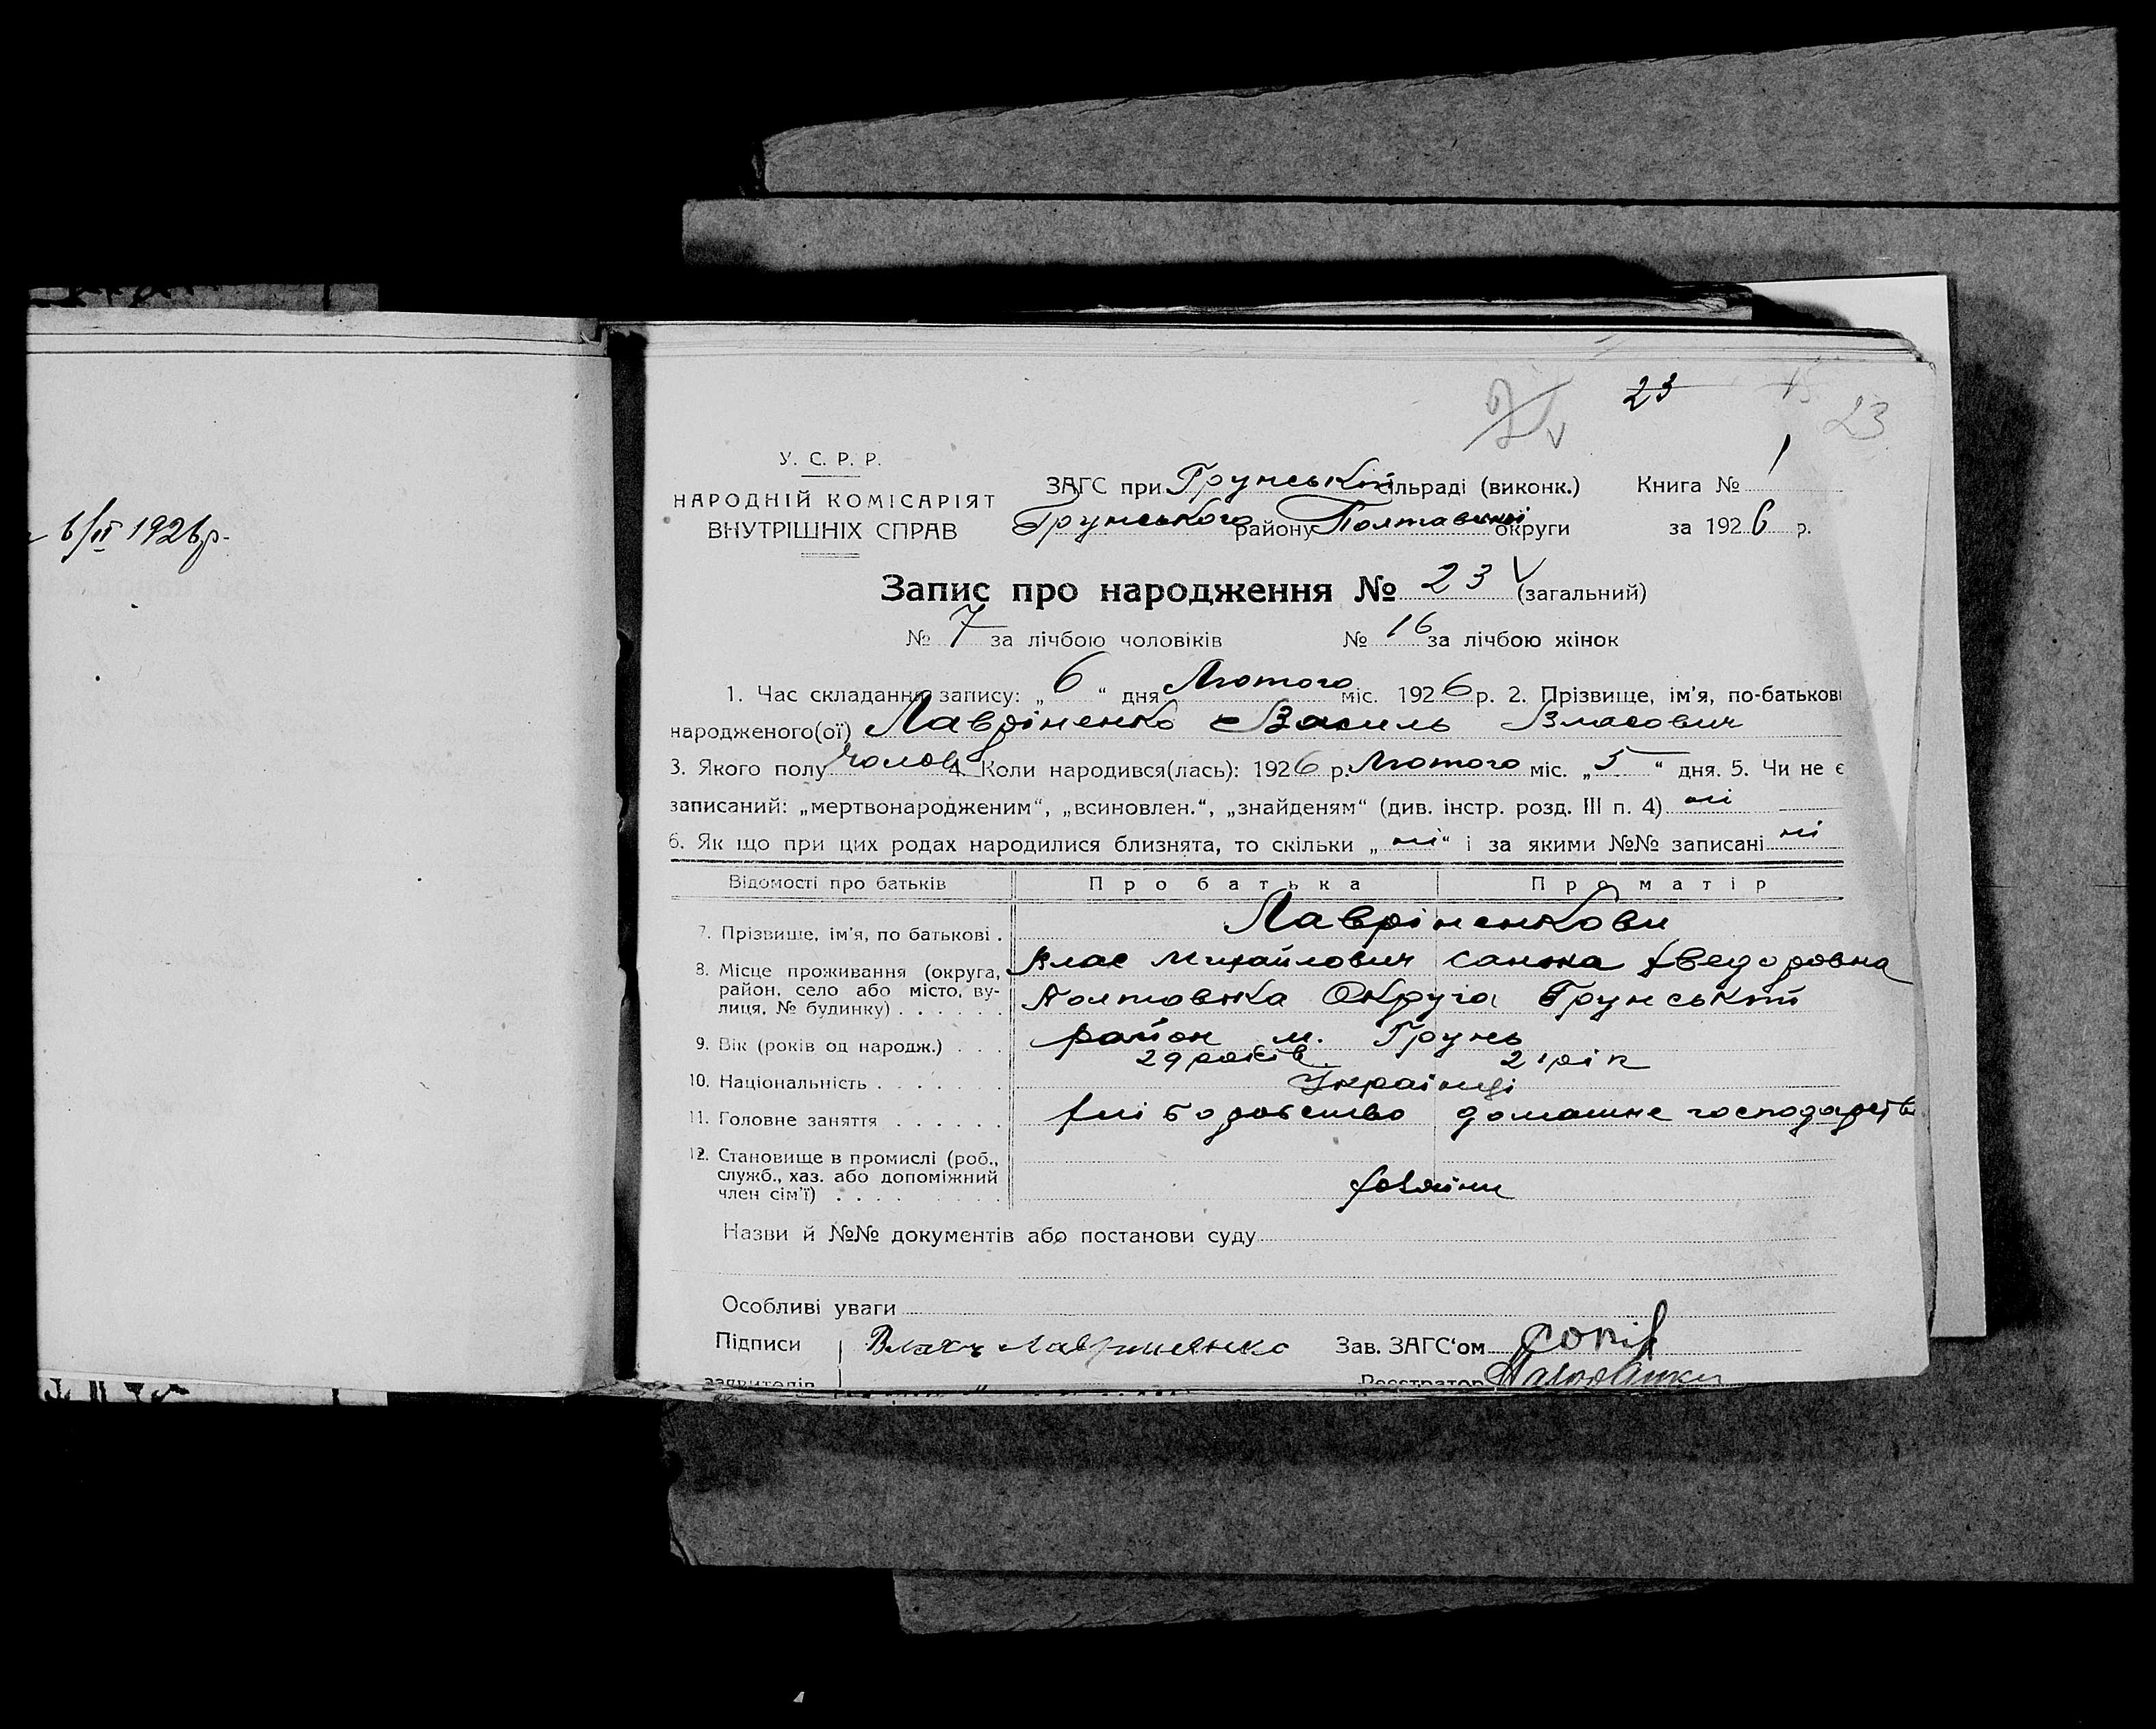 23
23
У. С. Р. Р.
НАРОДНІЙ КОМІСАРІЯТ
ВНУТРІШНІХ СПРАВ
ЗАГС при Грунській сільраді (виконк.) Книга № 1
Грунського району Полтавської округи за 1926 р.
6/II 1926р.
Запис про народження № 23 (загальний)
№ 7 за лічбою чоловіків № 16 за лічбою жінок
1. Час складання запису: „6“ дня Лютого міс. 1926 р. 2. Прізвище, ім'я, по-батькові
народженого(ої) Лавріненко Василь Власович
3. Якого полу чолов 4. Коли народився(лась): 1926 р. Лютого міс. „5“ дня. 5. Чи не є
записаний: „мертвонародженим“, „всиновлен.“, „знайденям“ (див. інстр. розд. III п. 4) ні
6. Як що при цих родах народилися близнята, то скільки „ні“ і за якими №№ записані ні
Відомості про батьків Про батька Про матір
Лавріненкови
7. Прізвише, ім'я, по батькові .
Влас Михайлович Санька Хведоровна
8. Місце проживання (округа,
район, село або місто, ву-
лиця, № будинку) . . . . . .
Полтавська Округа Грунський
район м. Грунь
9. Вік (років од народж.) . . .
29 років 21 рік
10. Національність . . . . . . .
Українці
11. Головне заняття . . . . . .
Хліборобство домашнє господарств
12. Становище в промислі (роб.,
служб., хаз. або допоміжний
член сім'ї) . . . . . . . .
хазяіни
Назви й №№ документів або постанови суду
Особливі уваги
Підписи Влахъ Лавриненко Зав. ЗАГС'ом
заявителів Реєстратор